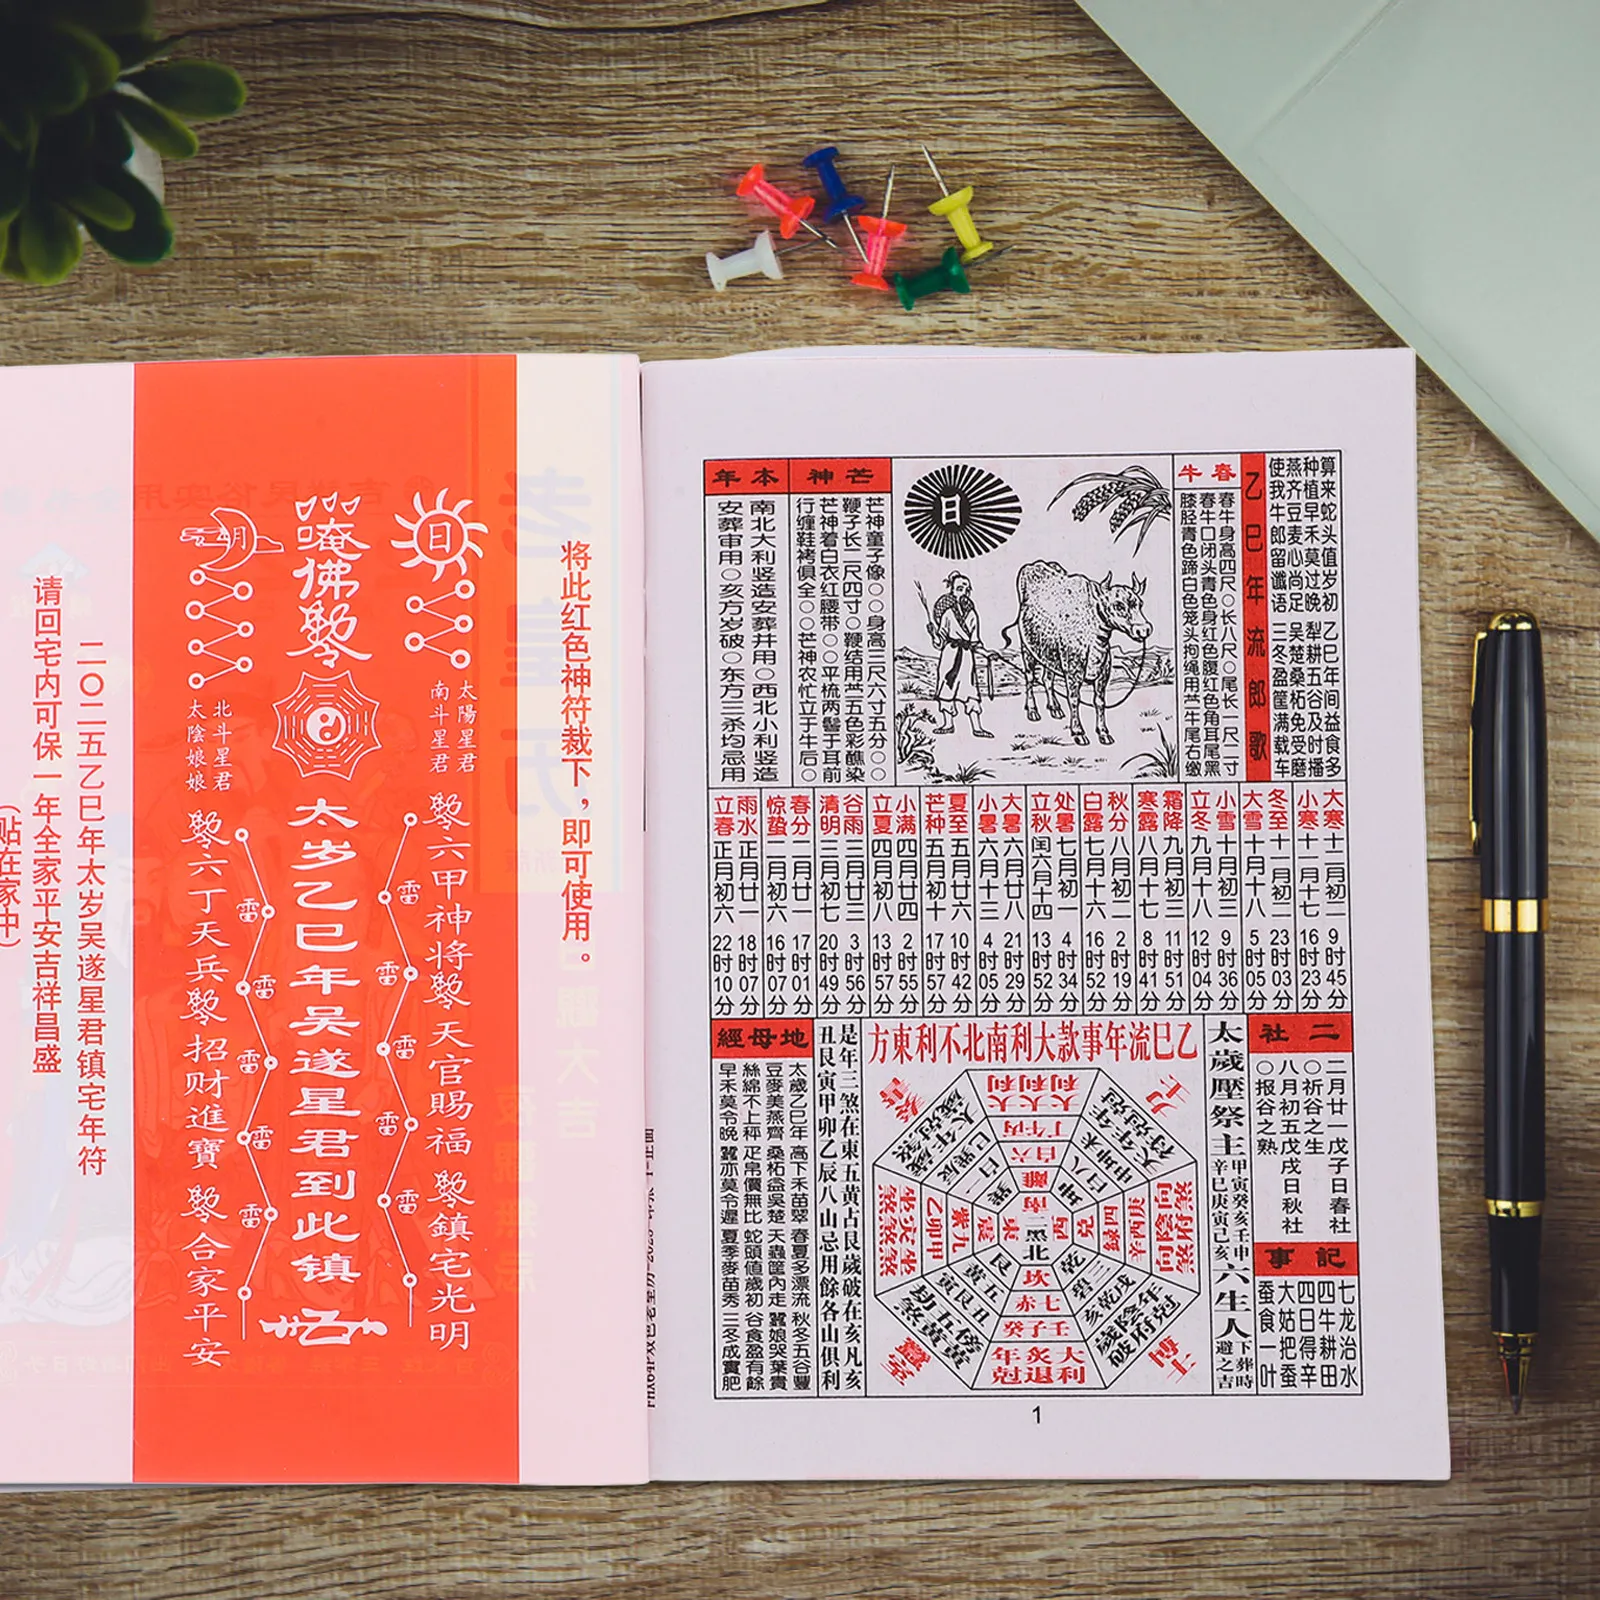 将此红色神符裁下，即可使用。
日
太陽星君
南斗星君
唵佛
月
北斗星君
太陰娘娘
六甲神将
天官賜福
鎮宅光明
太岁乙巳年吴遂星君到此镇
六丁天兵
招财進寶
合家平安
雷
雷
雷
雷
雷
雷
雷
雷
雷
雷
二〇二五乙巳年太岁吴遂星君镇宅年符
请回宅内可保一年全家平安吉祥昌盛
（贴在家中）
算来蛇头值岁初 乙巳年间益食多
种植早禾莫过晚 犁耕五谷及时播
燕齐豆麦心尚足 吴楚桑柘免受磨
使我牛郎留谶语 三冬盈筐满载车
乙巳年流郎歌
春牛
春牛身高四尺○长八尺○尾长一尺二寸
春牛口闭头青色身红色腹红色角耳尾黑
膝胫青色蹄白色笼头拘绳用苎牛尾右缴
日
芒神
芒神童子像○○身高三尺六寸五分○○
鞭子长二尺四寸○鞭结用苎五色彩醮染
芒神着白衣红腰带○○平梳两髻于耳前
行缠鞋袴俱全○○芒神农忙立于牛后○
本年
南北大利竖造安葬并用○西北小利竖造
安葬审用○亥方岁破○东方三杀均忌用
大寒十二月初二 9时45分
小寒十一月十七 16时23分
冬至十一月初二 23时03分
大雪十月十八 5时05分
小雪十月初三 9时36分
立冬九月十八 12时04分
霜降九月初三 11时51分
寒露八月十七 8时41分
秋分八月初二 2时19分
白露七月十六 16时52分
处暑七月初一 4时34分
立秋闰六月十四 13时52分
大暑六月廿八 21时29分
小暑六月十三 4时05分
夏至五月廿六 10时42分
芒种五月初十 17时57分
小满四月廿四 2时55分
立夏四月初八 13时57分
谷雨三月廿三 3时56分
清明三月初七 20时49分
春分二月廿一 17时01分
惊蛰二月初六 16时07分
雨水正月廿一 18时07分
立春正月初六 22时10分
二社
二月廿一戊子日春社
○祈谷之生
八月初五戊戌日秋社
○报谷之熟
記事
七龙治水
四牛耕田
四日得辛
大姑把蚕
蚕食一叶
太歲壓祭主
甲寅癸亥壬申
辛巳庚寅己亥
六生人
下葬時
避之吉
乙巳流年事款大利南北不利東方
大利
丙午丁
六白
離
南
八白
坤
西
兌
四綠
庚酉辛
乾
三碧
戌乾亥
二黑
北
坎
七赤
壬子癸
艮
五黄
丑艮寅
東
震
九紫
甲卯乙
巽
辰巽巳
博士
力士
蠶室
是年三煞在東五黄占艮歲破在亥凡亥
丑艮寅甲卯乙辰八山忌用餘各山俱利
地母經
太歲乙巳年 高下禾苗翠 春夏多漂流 秋冬五谷豐
豆麥美燕齊 桑柘益吳楚 天蟲筐內走 蠶娘哭葉貴
絲綿不上秤 疋帛價無比 蛇頭值歲初 谷食盈有餘
早禾莫令晚 蠶亦莫令遲 夏季麥苗秀 三冬成實肥
1